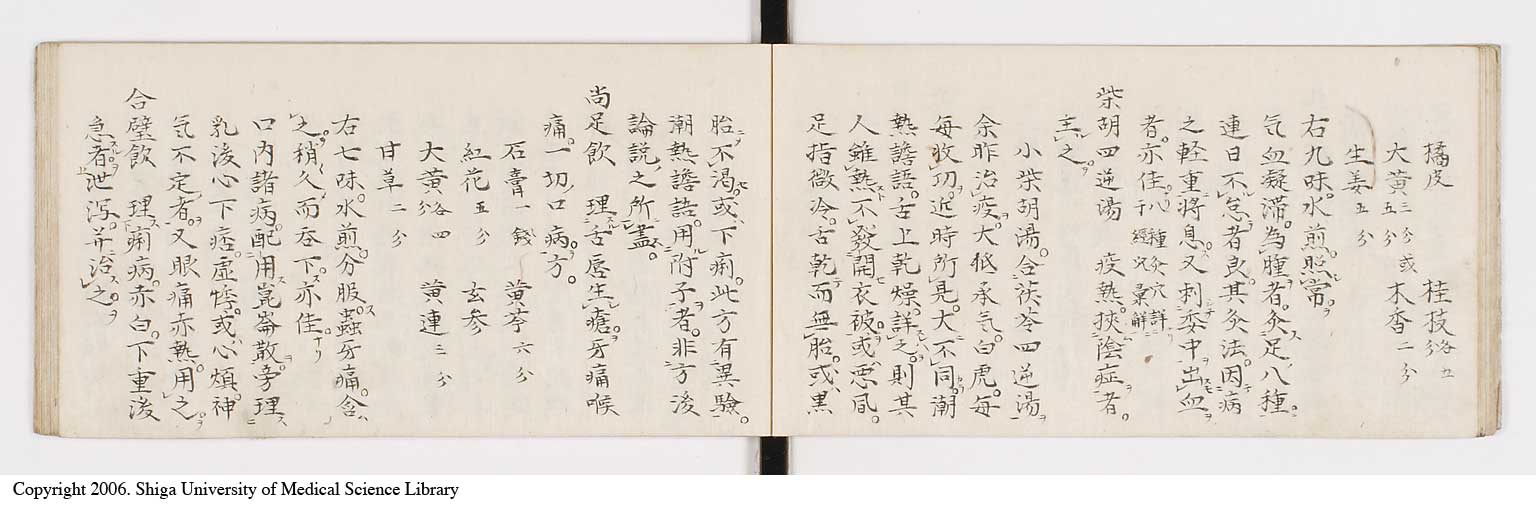 橘皮　桂枝各五分
大黄三分或五分　木香二分
生姜五分
右九味水煎照常
気血凝滞為腫者灸足八種
連日不怠者良其灸法因病
之軽重将息又刺委中出血
者亦佳八種灸穴詳于経穴彙解
柴胡四逆湯　疫熱挾陰症者
主之
小柴胡湯合茯苓四逆湯
余昨治疫大抵承気白虎毎
毎收功近時所見大不同潮
熱譫語舌上乾燥詳之則其
人雖熱不發開衣被或悪風
足指微冷舌乾而無胎或黒
胎不渇或下痢此方有異驗
潮熱譫語用附子者非方後
論説之所盡
尚足飲　理舌唇生瘡牙痛喉
痛一切口病方
石膏一銭　黄芩六分
紅花五分　玄参
大黄各四分　黄連三分
甘草二分
右七味水煎分服蟲牙痛含
之稍久而呑下亦佳
口内諸病配用崑崙散旁理
乳後心下痞虚悸或心煩神
気不定者又眼痛赤熱用之
合壁飲　理痢病赤白下重後
急者泄瀉并治之
Copyright 2006. Shiga University of Medical Science Library